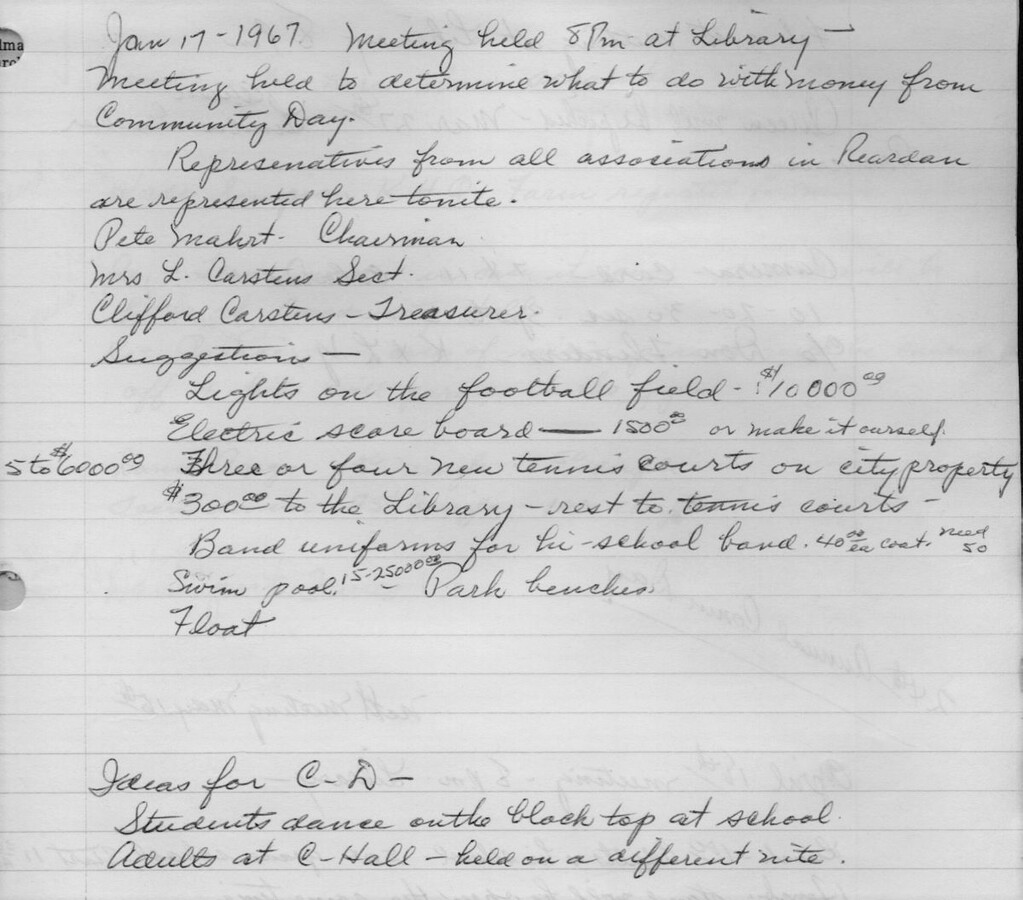 Jan 17 - 1967. Meeting held 8 Pm at Library -
Meeting held to determine what to do with money from
Community Day.
Represenatives from all associations in Reardan
are represented here tonite.
Pete Mahrt - Chairman
Mrs L. Carstens Sect.
Clifford Carstens - Treasurer.
Suggestions -
Lights on the football field - $10000 00
Electric score board — 1500 00 or make it ourself.
5 to $6000 00 Three or four new tennis courts on city property
$300 00 to the Library - rest to tennis courts -
Band uniforms for hi-school band. 40 00 ea coat. need 50
Swim pool. 15-25000 00 - Park benches
Float
Ideas for C-D -
Students dance on the black top at school.
Adults at C-Hall - held on a different nite.